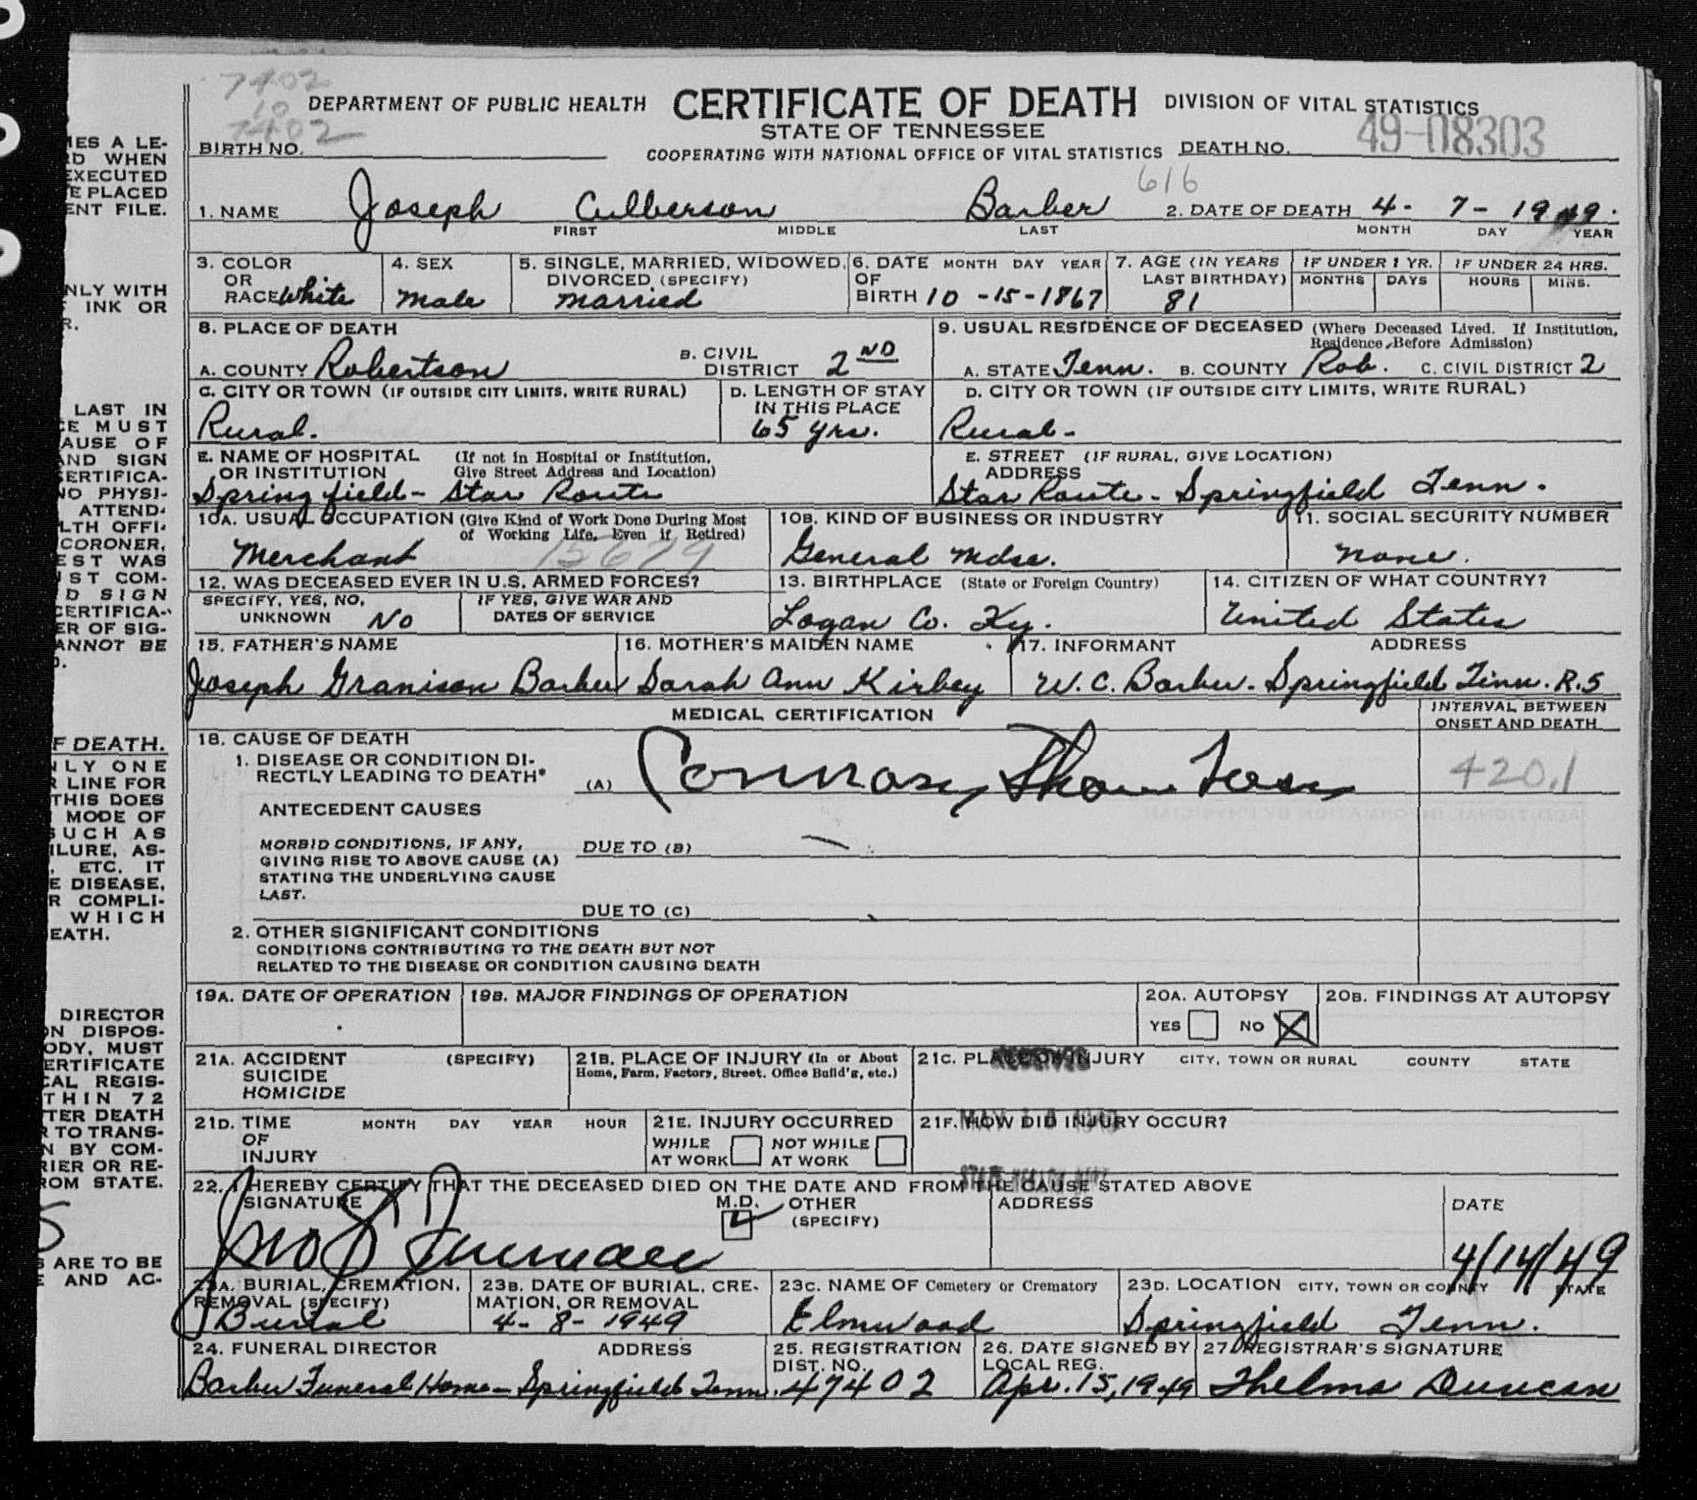 7402
10
7402
DEPARTMENT OF PUBLIC HEALTH CERTIFICATE OF DEATH DIVISION OF VITAL STATISTICS
STATE OF TENNESSEE
49-08303
BIRTH NO. COOPERATING WITH NATIONAL OFFICE OF VITAL STATISTICS DEATH NO.
616
1. NAME Joseph Culberson Barber 2. DATE OF DEATH 4- 7- 1949.
FIRST MIDDLE LAST MONTH DAY YEAR
3. COLOR OR RACE White
4. SEX Male
5. SINGLE, MARRIED, WIDOWED, DIVORCED (SPECIFY) Married
6. DATE OF BIRTH MONTH DAY YEAR 10 -15-1867
7. AGE (IN YEARS LAST BIRTHDAY) 81
IF UNDER 1 YR. MONTHS DAYS
IF UNDER 24 HRS. HOURS MINS.
8. PLACE OF DEATH
A. COUNTY Robertson B. CIVIL DISTRICT 2ND
9. USUAL RESIDENCE OF DECEASED (Where Deceased Lived. If Institution, Residence Before Admission)
A. STATE Tenn. B. COUNTY Rob. C. CIVIL DISTRICT 2
C. CITY OR TOWN (IF OUTSIDE CITY LIMITS, WRITE RURAL)
Rural.
D. LENGTH OF STAY IN THIS PLACE
65 yrs.
D. CITY OR TOWN (IF OUTSIDE CITY LIMITS, WRITE RURAL)
Rural-
E. NAME OF HOSPITAL OR INSTITUTION (If not in Hospital or Institution, Give Street Address and Location)
Springfield- Star Route
E. STREET ADDRESS (IF RURAL, GIVE LOCATION)
Star Route- Springfield Tenn.
10A. USUAL OCCUPATION (Give Kind of Work Done During Most of Working Life, Even if Retired)
Merchant 15679
10B. KIND OF BUSINESS OR INDUSTRY
General Mdse.
11. SOCIAL SECURITY NUMBER
None.
12. WAS DECEASED EVER IN U.S. ARMED FORCES?
SPECIFY, YES, NO, UNKNOWN No
IF YES, GIVE WAR AND DATES OF SERVICE
13. BIRTHPLACE (State or Foreign Country)
Logan Co. Ky.
14. CITIZEN OF WHAT COUNTRY?
United States
15. FATHER'S NAME
Joseph Granison Barber
16. MOTHER'S MAIDEN NAME
Sarah Ann Kirbey
17. INFORMANT ADDRESS
W.C. Barber- Springfield Tenn. R.5
MEDICAL CERTIFICATION
INTERVAL BETWEEN ONSET AND DEATH
18. CAUSE OF DEATH
1. DISEASE OR CONDITION DIRECTLY LEADING TO DEATH* (A) 420.1
ANTECEDENT CAUSES
MORBID CONDITIONS, IF ANY, GIVING RISE TO ABOVE CAUSE (A) STATING THE UNDERLYING CAUSE LAST.
DUE TO (B)
DUE TO (C)
2. OTHER SIGNIFICANT CONDITIONS
CONDITIONS CONTRIBUTING TO THE DEATH BUT NOT
RELATED TO THE DISEASE OR CONDITION CAUSING DEATH
19A. DATE OF OPERATION
19B. MAJOR FINDINGS OF OPERATION
20A. AUTOPSY
YES NO X
20B. FINDINGS AT AUTOPSY
21A. ACCIDENT SUICIDE HOMICIDE (SPECIFY)
21B. PLACE OF INJURY (In or About Home, Farm, Factory, Street, Office Build'g, etc.)
21C. PLACE OF INJURY CITY, TOWN OR RURAL COUNTY STATE
21D. TIME OF INJURY MONTH DAY YEAR HOUR
21E. INJURY OCCURRED
WHILE AT WORK NOT WHILE AT WORK
21F. HOW DID INJURY OCCUR?
22. I HEREBY CERTIFY THAT THE DECEASED DIED ON THE DATE AND FROM THE CAUSE STATED ABOVE
SIGNATURE M.D. OTHER (SPECIFY)
ADDRESS
DATE
4/14/49
23A. BURIAL, CREMATION, REMOVAL (SPECIFY)
Burial
23B. DATE OF BURIAL, CREMATION, OR REMOVAL
4- 8- 1949
23C. NAME OF Cemetery or Crematory
Elmwood
23D. LOCATION CITY, TOWN OR COUNTY STATE
Springfield Tenn.
24. FUNERAL DIRECTOR ADDRESS
Barber Funeral Home- Springfield Tenn.
25. REGISTRATION DIST. NO.
47402
26. DATE SIGNED BY LOCAL REG.
Apr. 15, 1949
27. REGISTRAR'S SIGNATURE
Thelma Duncan